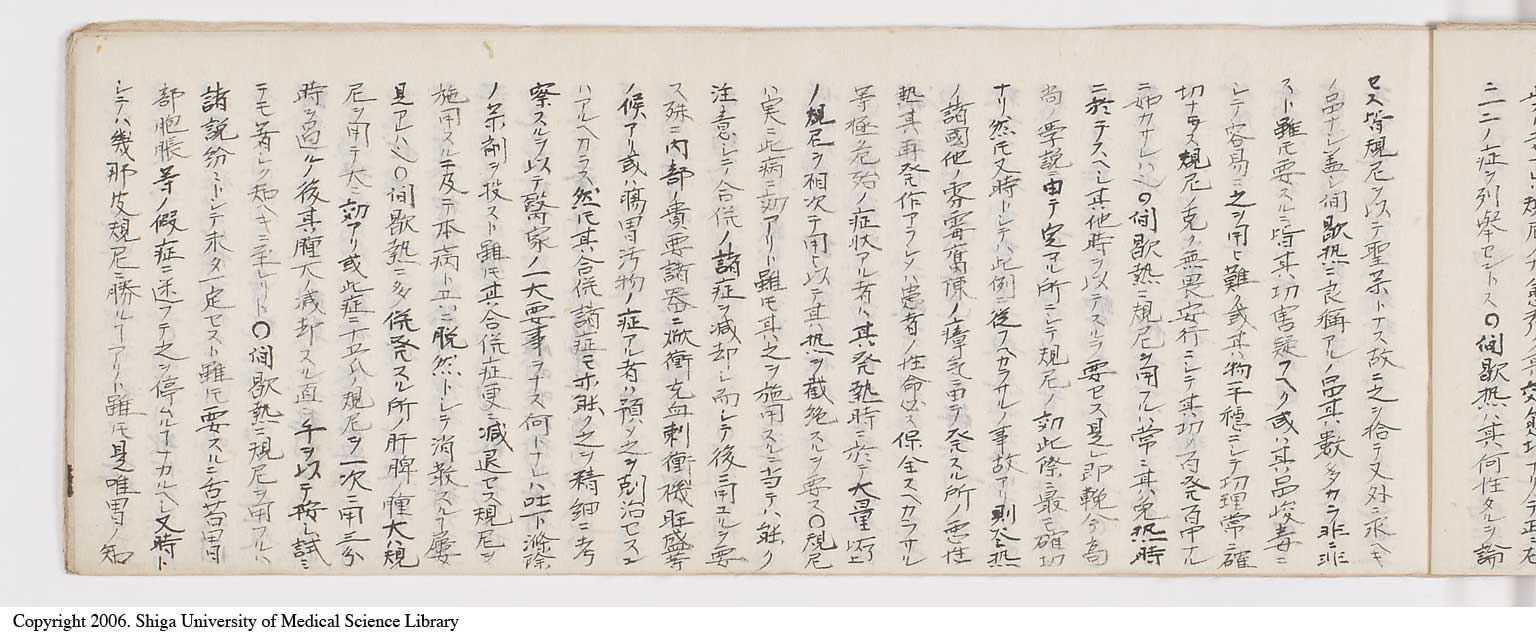 二一二ノ症ヲ列挙セントス〇間歇熱ハ其何性タルヲ論
セス皆規尼ヲ以テ聖薬トナス故ニ之ヲ捨テ又外ニ求ヘキ
ノ品ナシ盖シ間歇熱ニ良稱アルノ品其数多カラ非ニ非
スト雖モ要スルニ皆其功害疑フヘク或ハ其品峻毒ニ
シテ容易ニ之ヲ用ヒ難シ或ハ物平穏ニシテ切理常確
切ナラス規尼ノ克ク無畏安行ニシテ其功ノ百発百中ナル
ニ如カサレハ也〇間歇熱ニ規尼ヲ用フル常ニ其免熱時
ニ於テスヘシ其他時ヲ以テスルヲ要セス是レ即輓今高
尚ノ學説ニ由テ定マル所ニシテ規尼ノ効此際ニ最モ確切
ナリ然モ又時トシテハ此例ニ從フヘカラサルノ事故アリ則
ノ諸國他ノ雰霧腐陳ノ瘴気ニ由テ発スル所ノ悪性
熱其再発作アラシメハ患者ノ性命必ス保全スヘカラサル
等極危殆ノ症状アル者ハ其発熱時ニ於テ大量
ノ規尼ヲ相次テ用ヒ以テ其熱ヲ截絶スルヲ要ス〇規尼
ハ実ニ此病ニ効アリト雖モ其之ヲ施用スルニ当テハ能ク
注意シテ合併ノ諸症ヲ減却シ而シテ後ニ用ユルヲ要
ス殊ニ内部貴要諸器ニ焮衝充血刺衝機旺盛等
ノ候アリ或ハ膓胃汚物ノ症アル者ハ預メ之ヲ刮治セスン
ハアルヘカラス然モ其合併諸症モ亦能ク之ヲ精細ニ考
察スルヲ以テ醫家ノ一大要事ヲナス何トナレハ吐下滌除
ノ薬剤ヲ投スト雖モ其合併症更ニ減退セス規尼ヲ
施用スルニ及テ本病ト立ニ脱然トシテ消散スルヿ屡
見アレハ也〇間歇熱ニ多ク併発スル所ノ肝脾腫大ハ規
尼ヲ用テ大ニ効アリ或此症ニ十五氏ノ規尼ヲ一次ニ用三分
時ヲ過ルノ後其腫大ノ減却スル直ニ手ヲ以テ按シ試ミ
テモ著シク知ヘキニ至レリト〇間歇熱ニ規尼ヲ用フルハ
諸説紛ミトシテ未タ一定セスト雖モ要スルニ舌苔胃
部胞脹等ノ假症ニ迷フテ之ヲ停ムルヿナカルヘシ又時ト
シテハ幾那皮規尼ニ勝ルヿアリト雖モ是唯胃ノ知